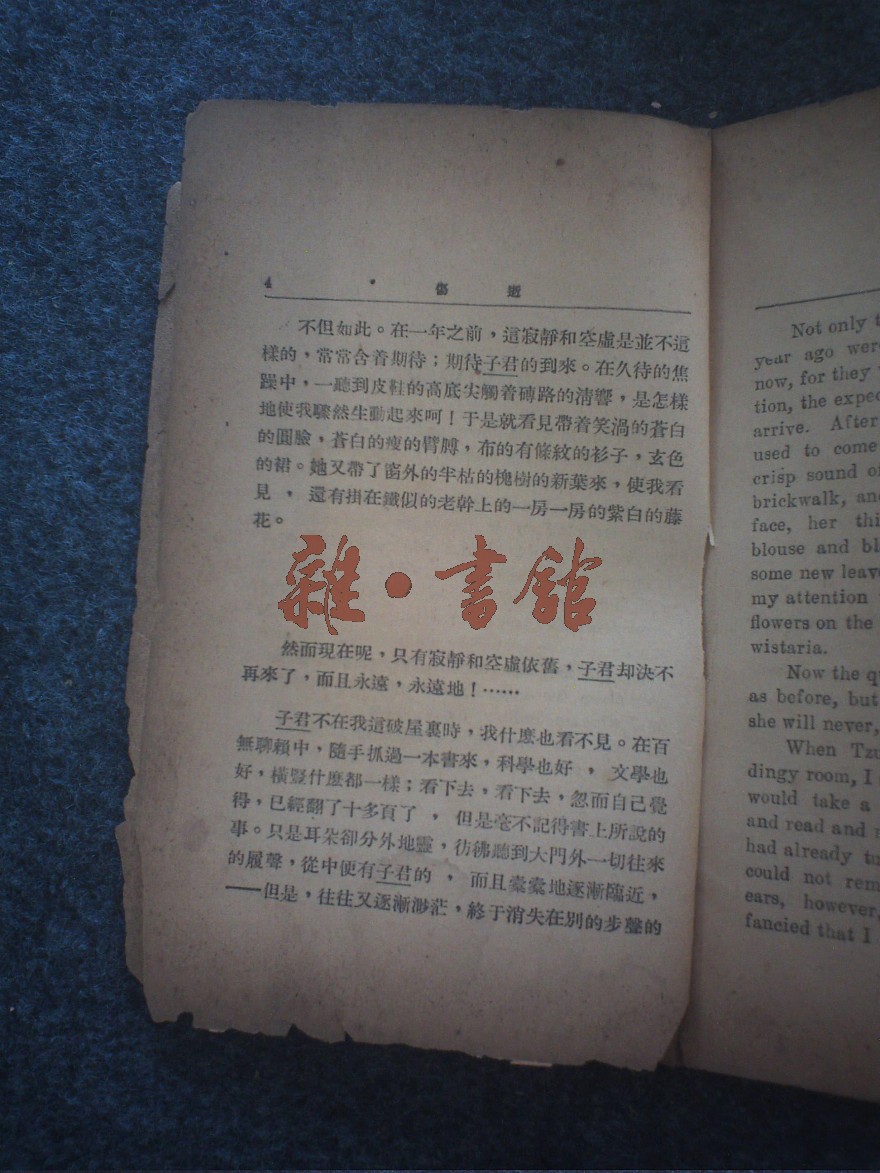 4 傷 逝
不但如此。在一年之前，這寂靜和空虛是並不這
樣的，常常含着期待；期待子君的到來。在久待的焦
躁中，一聽到皮鞋的高底尖觸着磚路的清響，是怎樣
地使我驟然生動起來呵！于是就看見帶着笑渦的蒼白
的圓臉，蒼白的瘦的臂膊，布的有條紋的衫子，玄色
的裙。她又帶了窗外的半枯的槐樹的新葉來，使我看
見，還有掛在鐵似的老幹上的一房一房的紫白的藤
花。
雜·書館
然而現在呢，只有寂靜和空虛依舊，子君却決不
再來了，而且永遠，永遠地！……
子君不在我這破屋裏時，我什麽也看不見。在百
無聊賴中，隨手抓過一本書來，科學也好，文學也
好，橫豎什麽都一樣；看下去，看下去，忽而自己覺
得，已經翻了十多頁了，但是毫不記得書上所說的
事。只是耳朵卻分外地靈，彷彿聽到大門外一切往來
的履聲，從中便有子君的，而且橐橐地逐漸臨近，
——但是，往往又逐漸渺茫，終于消失在別的步聲的
Not only t
year ago wer
now, for they
tion, the expec
arrive. After
used to come
crisp sound of
brickwalk, an
face, her thi
blouse and bl
some new leav
my attention
flowers on the
wistaria.
Now the q
as before, but
she will never,
When Tzu
dingy room, I
would take a
and read and
had already tu
could not rem
ears, however,
fancied that I